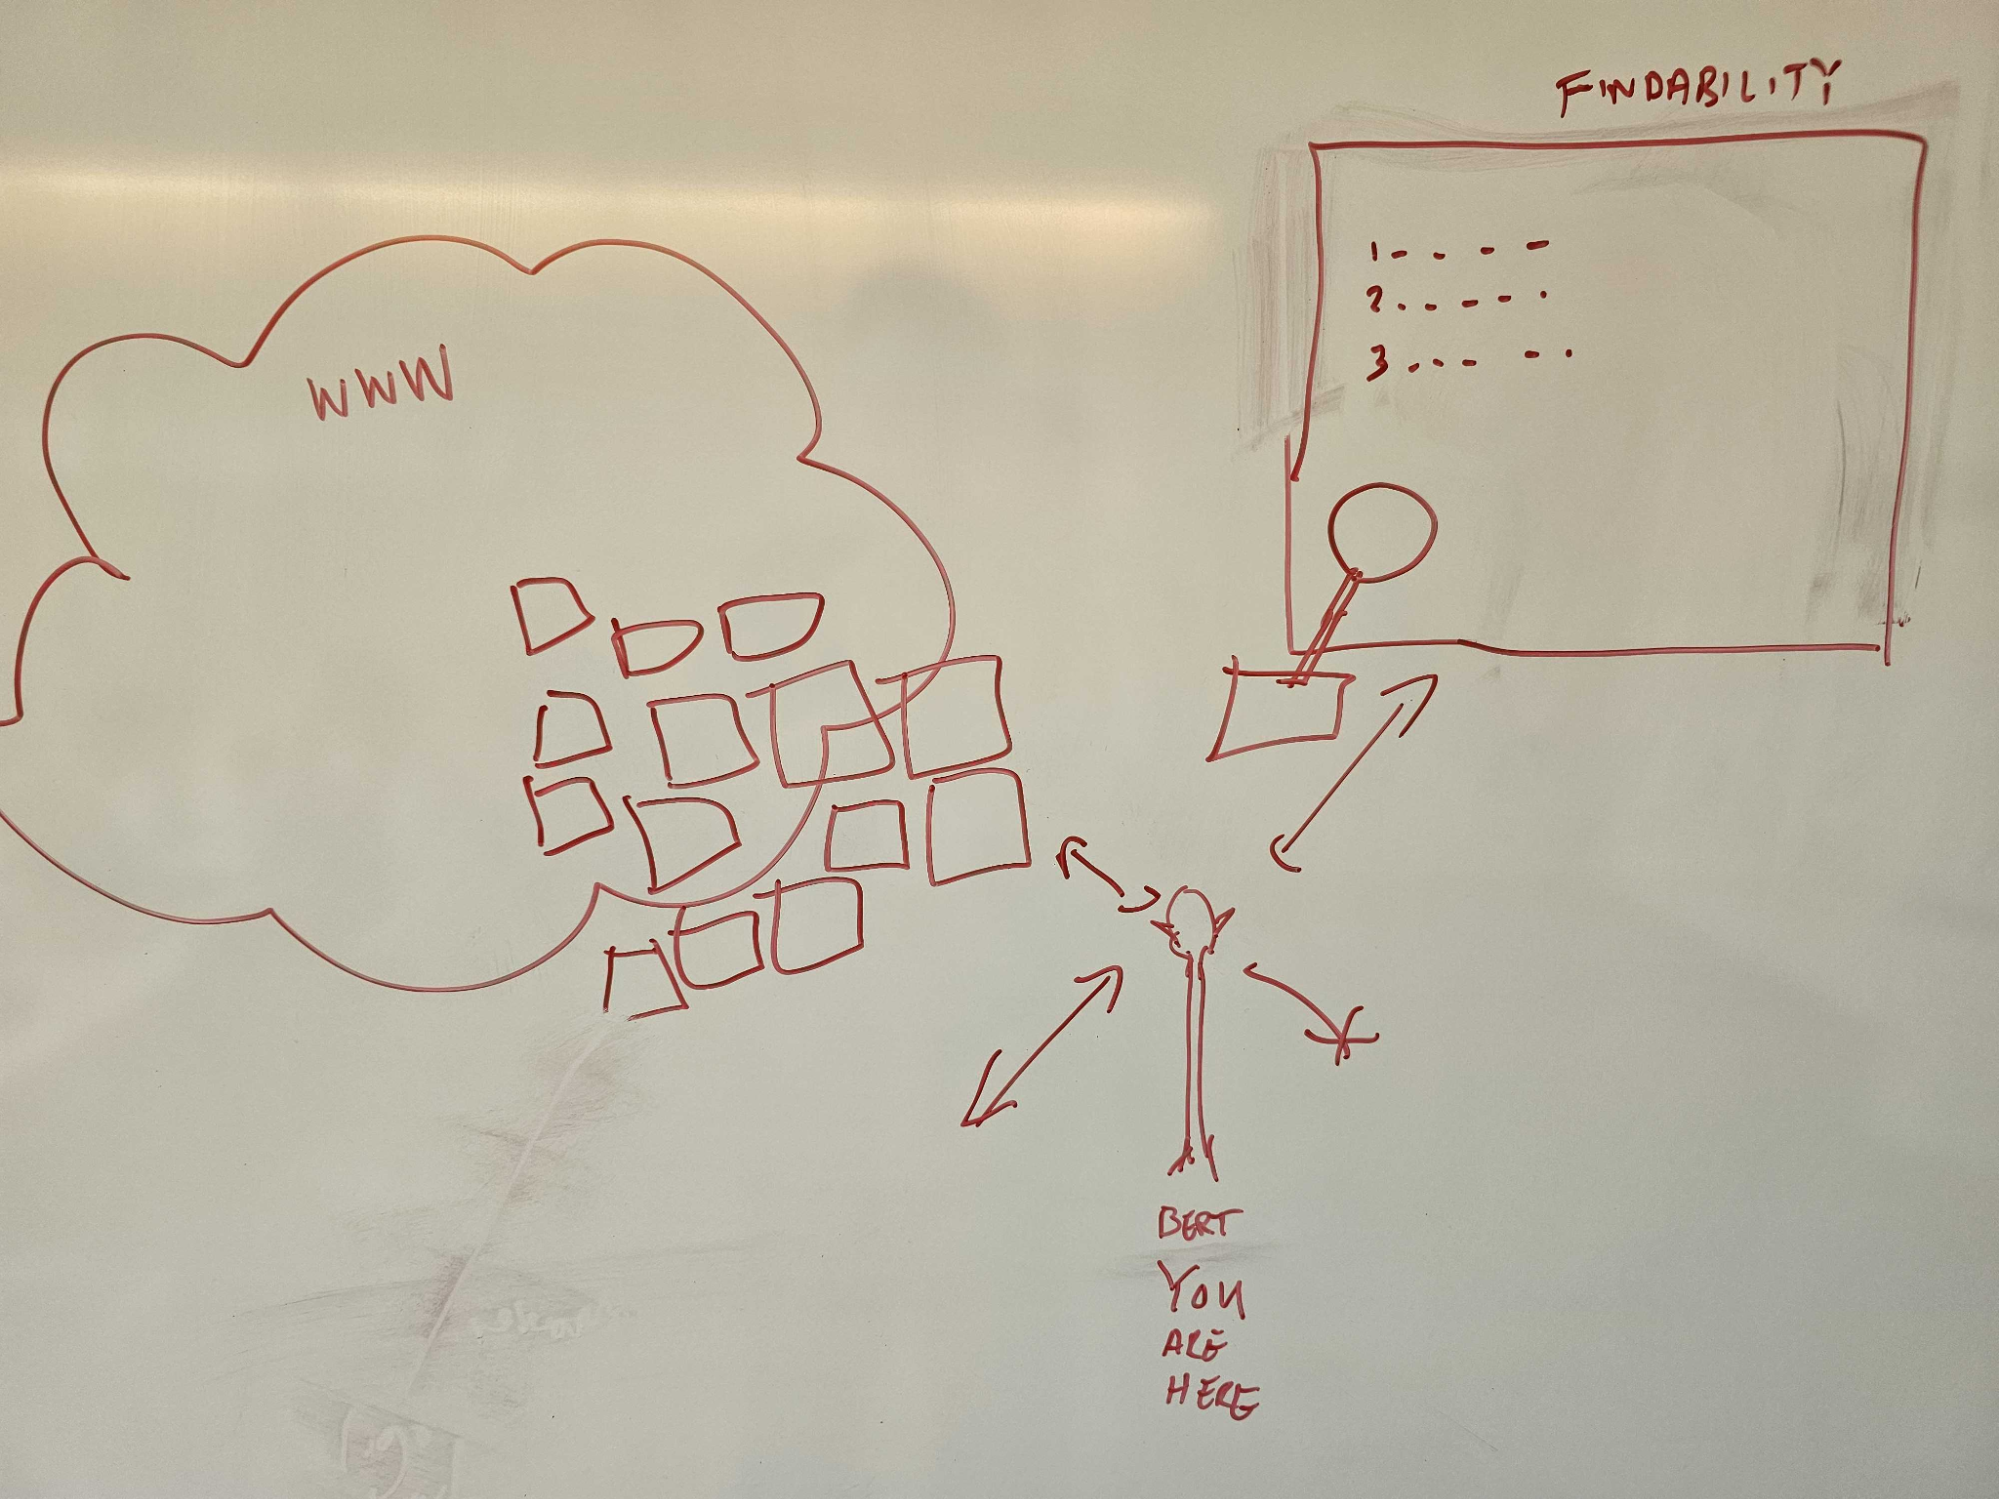 FINDABILITY
WWW
1
2
3
BERT
YOU
ARE
HERE